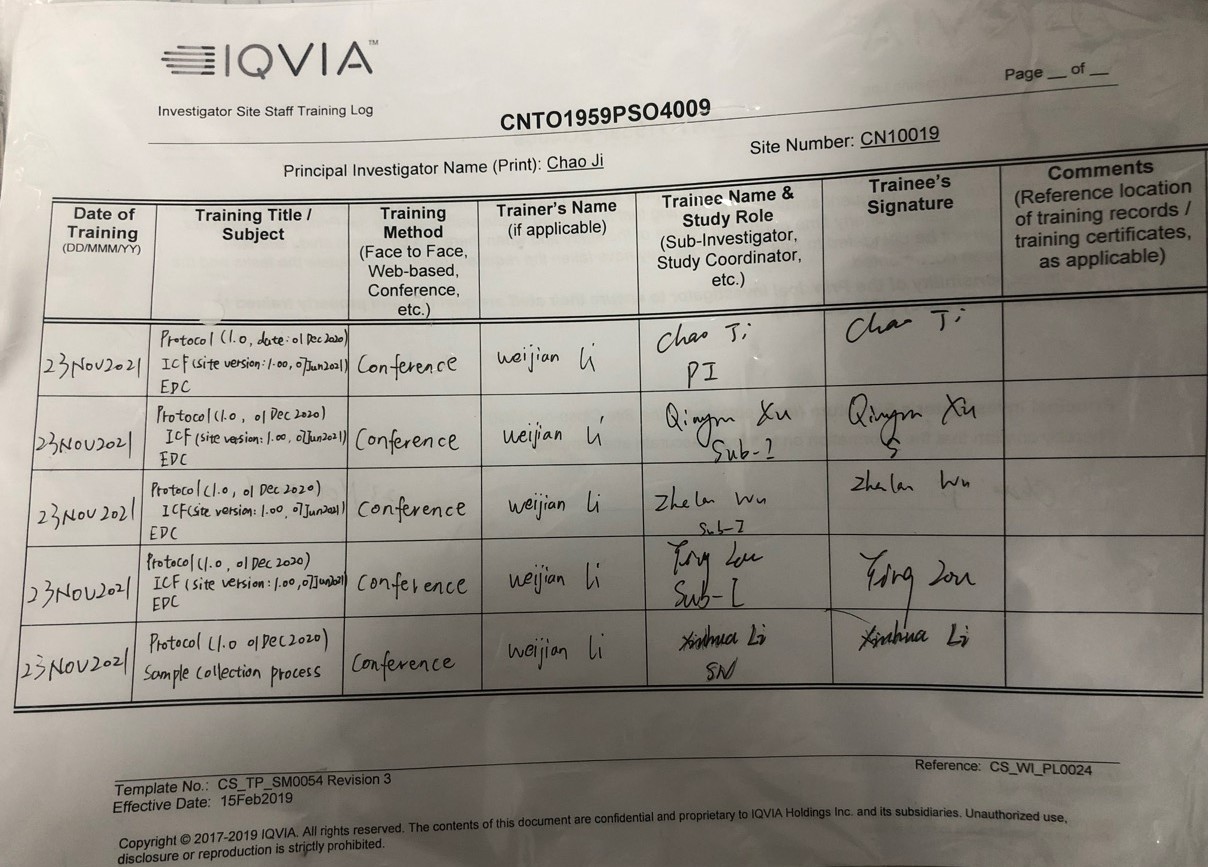 IQVIA™
Page __ of __
Investigator Site Staff Training Log
CNTO1959PSO4009
Principal Investigator Name (Print): Chao Ji
Site Number: CN10019
Date of Training (DD/MMM/YY)
Training Title / Subject
Training Method (Face to Face, Web-based, Conference, etc.)
Trainer's Name (if applicable)
Trainee Name & Study Role (Sub-Investigator, Study Coordinator, etc.)
Trainee's Signature
Comments (Reference location of training records / training certificates, as applicable)
23NOV2021
Protocol (1.0, date:01Dec2020)
ICF (site version:1.00, 07Jun2021)
EDC
Conference
weijian li
Chao Ji
PI
Chao Ji
23NOV2021
Protocol (1.0, 01Dec2020)
ICF (site version: 1.00, 07Jun2021)
EDC
Conference
weijian li
Xu
Sub-I
Xu
23NOV2021
Protocol (1.0, 01Dec2020)
ICF (site version: 1.00, 07Jun2021)
EDC
Conference
weijian li
Zhelan Wu
Sub-I
Zhelan Wu
23NOV2021
Protocol (1.0, 01Dec2020)
ICF (site version: 1.00, 07Jun2021)
EDC
Conference
weijian li
Ying Lou
Sub-I
Ying Lou
23NOV2021
Protocol (1.0 01Dec2020)
Sample collection process
Conference
weijian li
Xinhua Li
SN
Xinhua Li
Template No.: CS_TP_SM0054 Revision 3
Effective Date: 15Feb2019
Reference: CS_WI_PL0024
Copyright © 2017-2019 IQVIA. All rights reserved. The contents of this document are confidential and proprietary to IQVIA Holdings Inc. and its subsidiaries. Unauthorized use,
disclosure or reproduction is strictly prohibited.